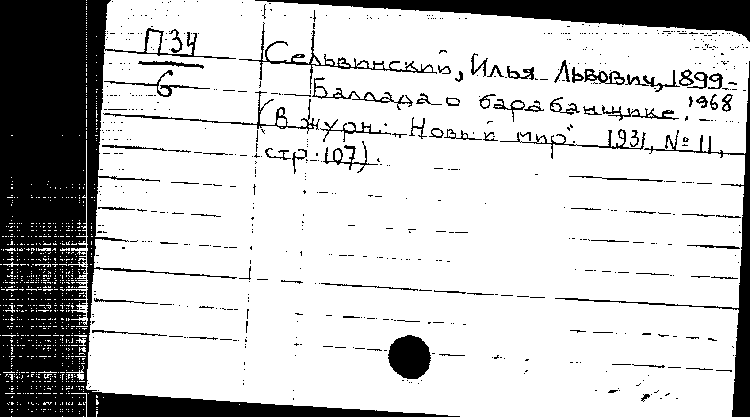 П34
6
Сельвинский, Илья Львович, 1899-
1968
Баллада о барабанщике.
(В журн.: "Новый мир". 1931, № 11,
стр. 107).